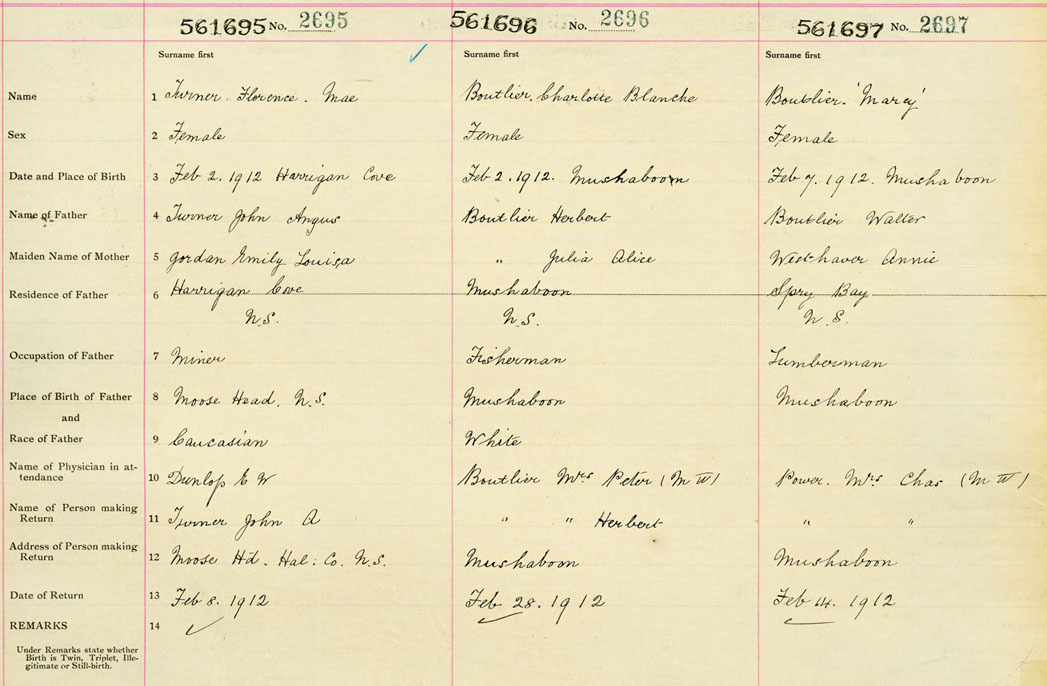 561695 No. 2695 561696 No. 2696 561697 No. 2697
Surname first Surname first Surname first
Name 1 Turner. Florence. Mae Boutlier. Charlotte Blanche Boutlier. 'Marcy'
Sex 2 Female Female Female
Date and Place of Birth 3 Feb 2. 1912 Harrigan Cove Feb 2. 1912. Mushaboon Feb 7. 1912. Mushaboon
Name of Father 4 Turner John Angus Boutlier Herbert Boutlier Walter
Maiden Name of Mother 5 Gordan Emily Louisa " Julia Alice Westhaver Annie
Residence of Father 6 Harrigan Cove Mushaboon Spry Bay
N.S. N.S. N.S.
Occupation of Father 7 Miner Fisherman Lumberman
Place of Birth of Father 8 Moose Head. N.S. Mushaboon Mushaboon
and
Race of Father 9 Caucasian White
Name of Physician in at-
tendance 10 Dunlop E W Boutlier Mrs Peter (M W) Power. Mrs Chas (M W)
Name of Person making
Return 11 Turner John A " " Herbert " "
Address of Person making
Return 12 Moose Hd. Hal: Co. N.S. Mushaboon Mushaboon
Date of Return 13 Feb 8. 1912 Feb 28. 1912 Feb 14. 1912
REMARKS 14
Under Remarks state whether
Birth is Twin, Triplet, Ille-
gitimate or Still-birth.